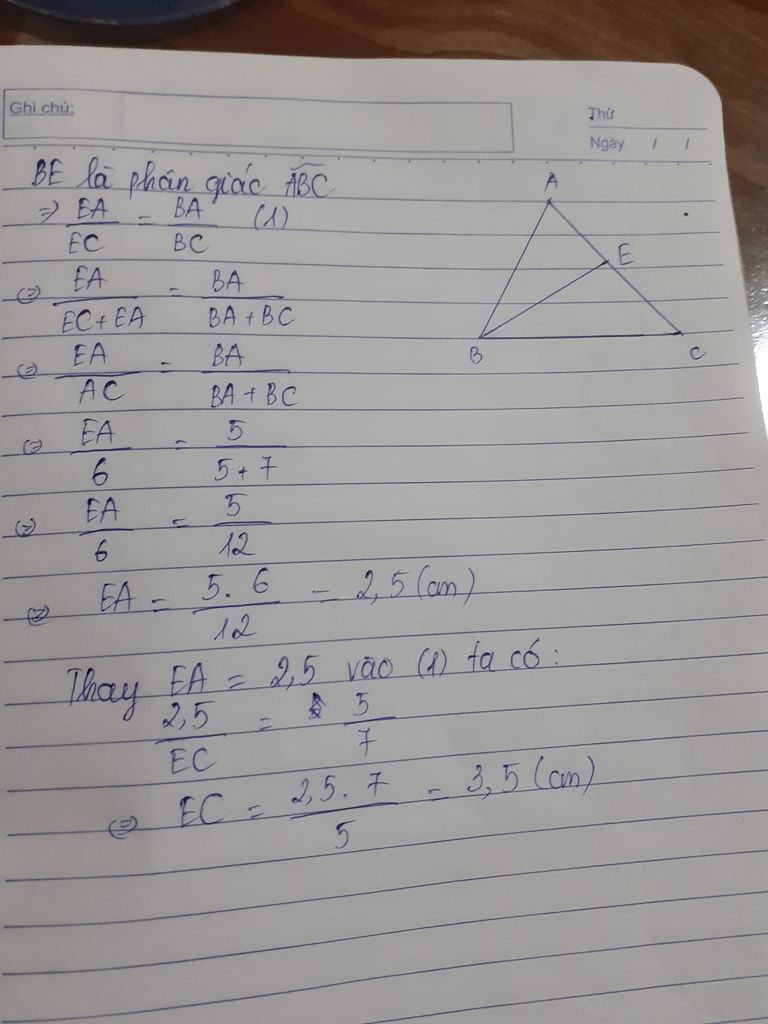 Ghi chú:
Thứ
Ngày / /
BE là phân giác ABC
⇒ EA/EC = BA/BC (1)
⇔ EA/EC+EA = BA/BA+BC
⇔ EA/AC = BA/BA+BC
⇔ EA/6 = 5/5+7
⇔ EA/6 = 5/12
⇔ EA = 5.6/12 = 2,5 (cm)
Thay EA = 2,5 vào (1) ta có:
2,5/EC = 5/7
⇔ EC = 2,5.7/5 = 3,5 (cm)
A
E
B
C